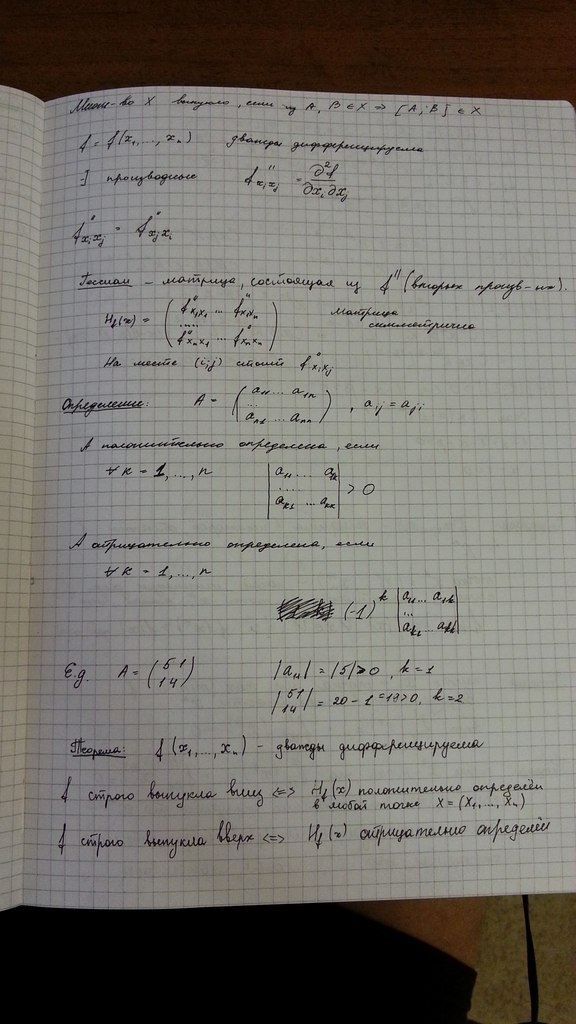 Множ-во X выпукло, если из A, B ∈ X ⇒ [A; B] ∈ X
f = f(x₁, ..., xₙ) дважды дифференцируема
∃ производные f''xᵢxⱼ = ∂²f / ∂xᵢ∂xⱼ
f''xᵢxⱼ = f''xⱼxᵢ
Гессиан – матрица, состоящая из f'' (вторых произв-ых).
H_f(x) = ( f''x₁x₁ ... f''x₁xₙ
.....
f''xₙx₁ ... f''xₙxₙ ) матрица симметрична
На месте (i;j) стоит f''xᵢxⱼ
Определение: A = ( a₁₁ ... a₁ₙ
...
aₙ₁ ... aₙₙ ), aᵢⱼ = aⱼᵢ
A положительно определена, если
∀ k = 1, ..., n | a₁₁ ... a₁ₖ
.....
aₖ₁ ... aₖₖ | > 0
A отрицательно определена, если
∀ k = 1, ..., n
(-1)ᵏ | a₁₁ ... a₁ₖ
...
aₖ₁ ... aₖₖ |
E.g. A = ( 5 1
1 4 ) |a₁₁| = |5| > 0, k = 1
| 5 1
1 4 | = 20 - 1 = 19 > 0, k = 2
Теорема: f(x₁, ..., xₙ) – дважды дифференцируема
f строго выпукла вниз <=> H_f(x) положительно определён
в любой точке X = (x₁, ..., xₙ)
f строго выпукла вверх <=> H_f(x) отрицательно определён